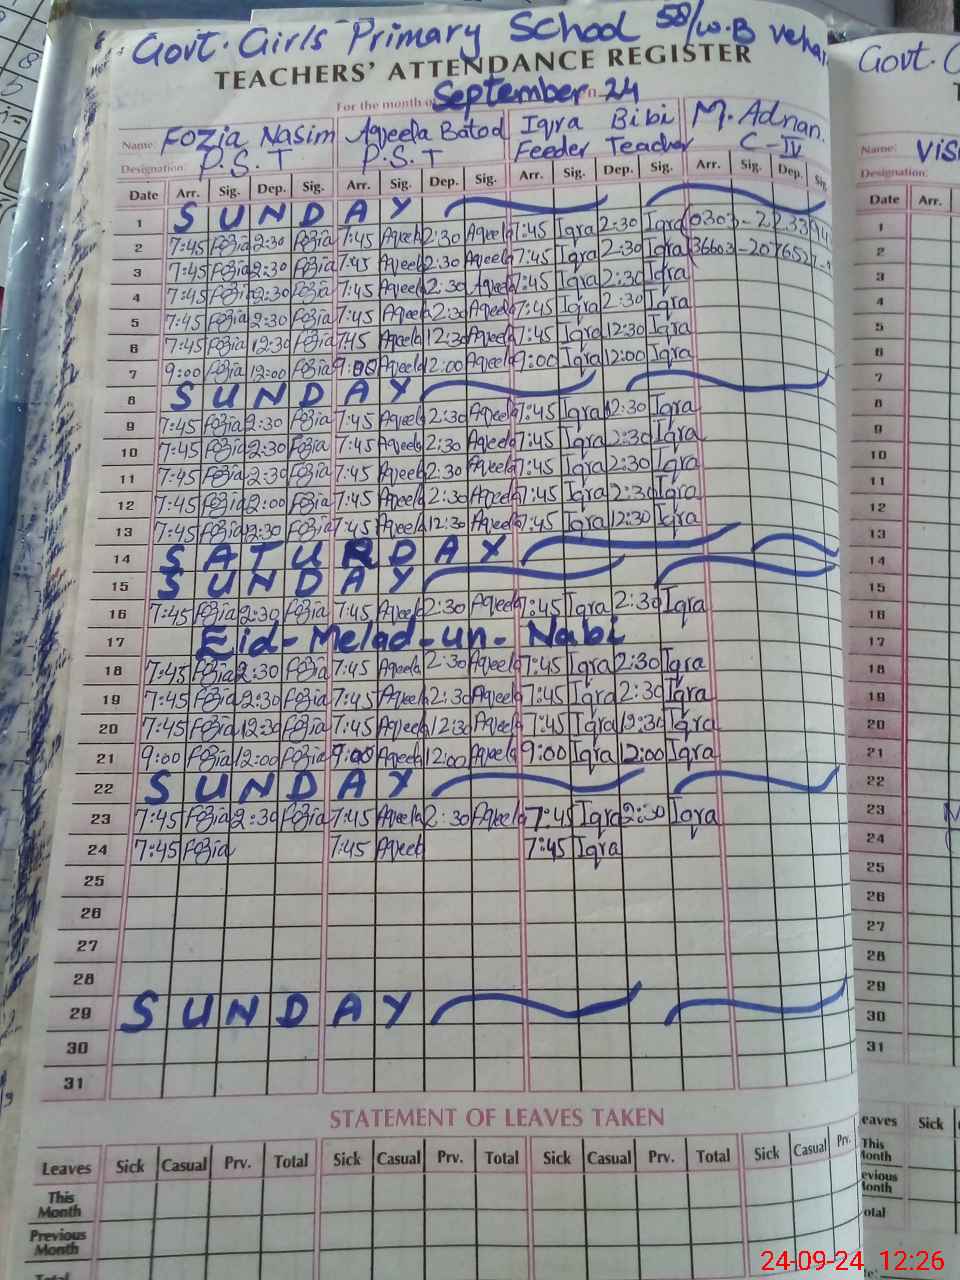 Govt. Girls Primary School 58/W.B Vehari
TEACHERS' ATTENDANCE REGISTER
For the month of September 24
Name: Fozia Nasim Aqeela Batool Iqra Bibi M. Adnan
Designation: P.S.T P.S.T Feeder Teacher C-IV
Date Arr. Sig. Dep. Sig. Arr. Sig. Dep. Sig. Arr. Sig. Dep. Sig. Arr. Sig. Dep. Sig.
1 SUNDAY
2 7:45 Fozia 2:30 Fozia 7:45 Aqeela 2:30 Aqeela 7:45 Iqra 2:30 Iqra
3 7:45 Fozia 2:30 Fozia 7:45 Aqeela 2:30 Aqeela 7:45 Iqra 2:30 Iqra
4 7:45 Fozia 2:30 Fozia 7:45 Aqeela 2:30 Aqeela 7:45 Iqra 2:30 Iqra
5 7:45 Fozia 2:30 Fozia 7:45 Aqeela 2:30 Aqeela 7:45 Iqra 2:30 Iqra
6 7:45 Fozia 12:30 Fozia 7:45 Aqeela 12:30 Aqeela 7:45 Iqra 12:30 Iqra
7 9:00 Fozia 12:00 Fozia 9:00 Aqeela 12:00 Aqeela 9:00 Iqra 12:00 Iqra
8 SUNDAY
9 7:45 Fozia 2:30 Fozia 7:45 Aqeela 2:30 Aqeela 7:45 Iqra 2:30 Iqra
10 7:45 Fozia 2:30 Fozia 7:45 Aqeela 2:30 Aqeela 7:45 Iqra 2:30 Iqra
11 7:45 Fozia 2:30 Fozia 7:45 Aqeela 2:30 Aqeela 7:45 Iqra 2:30 Iqra
12 7:45 Fozia 2:00 Fozia 7:45 Aqeela 2:30 Aqeela 7:45 Iqra 2:30 Iqra
13 7:45 Fozia 2:30 Fozia 7:45 Aqeela 12:30 Aqeela 7:45 Iqra 12:30 Iqra
14 SATURDAY
15 SUNDAY
16 7:45 Fozia 2:30 Fozia 7:45 Aqeela 2:30 Aqeela 7:45 Iqra 2:30 Iqra
17 Eid-Melad-un-Nabi
18 7:45 Fozia 2:30 Fozia 7:45 Aqeela 2:30 Aqeela 7:45 Iqra 2:30 Iqra
19 7:45 Fozia 2:30 Fozia 7:45 Aqeela 2:30 Aqeela 7:45 Iqra 2:30 Iqra
20 7:45 Fozia 12:30 Fozia 7:45 Aqeela 12:30 Aqeela 7:45 Iqra 12:30 Iqra
21 9:00 Fozia 12:00 Fozia 9:00 Aqeela 12:00 Aqeela 9:00 Iqra 12:00 Iqra
22 SUNDAY
23 7:45 Fozia 2:30 Fozia 7:45 Aqeela 2:30 Aqeela 7:45 Iqra 2:30 Iqra
24 7:45 Fozia 7:45 Aqeela 7:45 Iqra
25
26
27
28
29 SUNDAY
30
31
STATEMENT OF LEAVES TAKEN
Leaves Sick Casual Prv. Total Sick Casual Prv. Total Sick Casual Prv. Total Sick Casual Prv.
This Month
Previous Month
Total
Govt.
Name:
Designation
Date Arr.
1
2
3
4
5
6
7
8
9
10
11
12
13
14
15
16
17
18
19
20
21
22
23
24
25
26
27
28
29
30
31
Sick
24-09-24 12:26